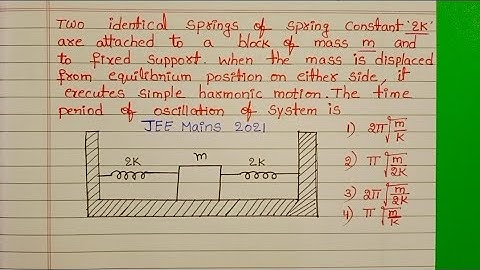 Two identical springs of spring constant '2K'
are attached to a block of mass m and
to fixed support. When the mass is displaced
from equilibrium position on either side, it
executes simple harmonic motion. The time
period of oscillation of system is
JEE Mains 2021
1) 2π√m/K
2) π√m/2K
3) 2π√m/2K
4) π√m/K
2K m 2K